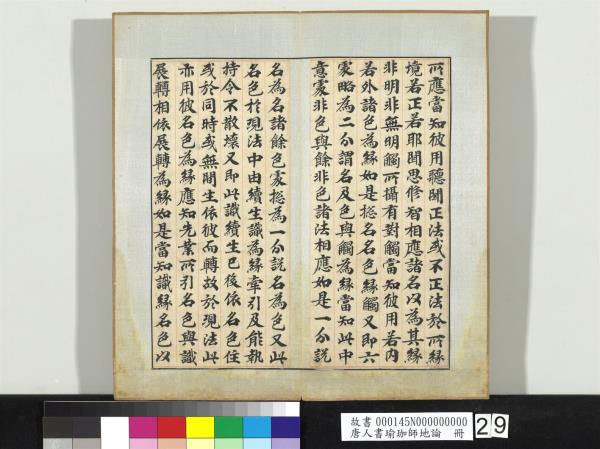 所應當知彼用聽聞正法或不正法於所緣
境若正若耶聞思修智相應諸名以為其緣
非明非無明觸所攝有對觸當知彼用若内
若外諸色為緣如是捴名名色緣觸又即六
處略為二分謂名及色與觸為緣當知此中
意處非色與餘非色諸法相應如是一分説
名為名諸餘色處捴為一分説名為色又此
名色於現法中由續生識為緣牽引及能執
持令不散壞又即此識續生已後依名色住
或於同時或無間生依彼而轉故於現法此
亦用彼名色為緣應知先業所引名色與識
展轉相依展轉為緣如是當知識緣名色以
故書 000145N000000000
唐人書瑜珈師地論 冊
29